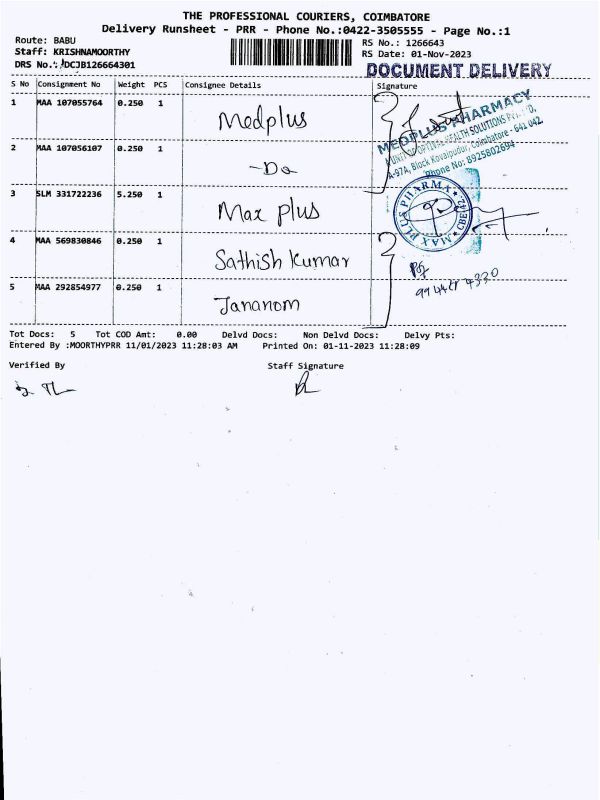 THE PROFESSIONAL COURIERS, COIMBATORE
Delivery Runsheet - PRR - Phone No.:0422-3505555 - Page No.:1
Route: BABU
RS No.: 1266643
Staff: KRISHNAMOORTHY
RS Date: 01-Nov-2023
DRS No.: DCJB126664301
DOCUMENT DELIVERY
S No Consignment No Weight PCS Consignee Details Signature
1 MAA 107055764 0.250 1 Medplus
2 MAA 107056107 0.250 1 -Do
3 SLM 331722236 5.250 1 Max plus
4 MAA 569830846 0.250 1 Sathish Kumar
5 MAA 292854977 0.250 1 Jananom
MEDPLUS PHARMACY
A UNIT OF OPTIVAL HEALTH SOLUTIONS
A-97A, Block Kovaipudur, Coimbatore - 641 042.
Phone No: 8925802694
MAX PLUS PHARMA
CBE-42
4320
Tot Docs: 5 Tot COD Amt: 0.00 Delvd Docs: Non Delvd Docs: Delvy Pts:
Entered By :MOORTHYPRR 11/01/2023 11:28:03 AM Printed On: 01-11-2023 11:28:09
Verified By Staff Signature